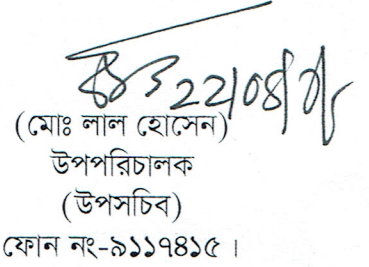 (মোঃ লাল হোসেন)
উপপরিচালক
(উপসচিব)
ফোন নং-৯১১৭৪১৫।